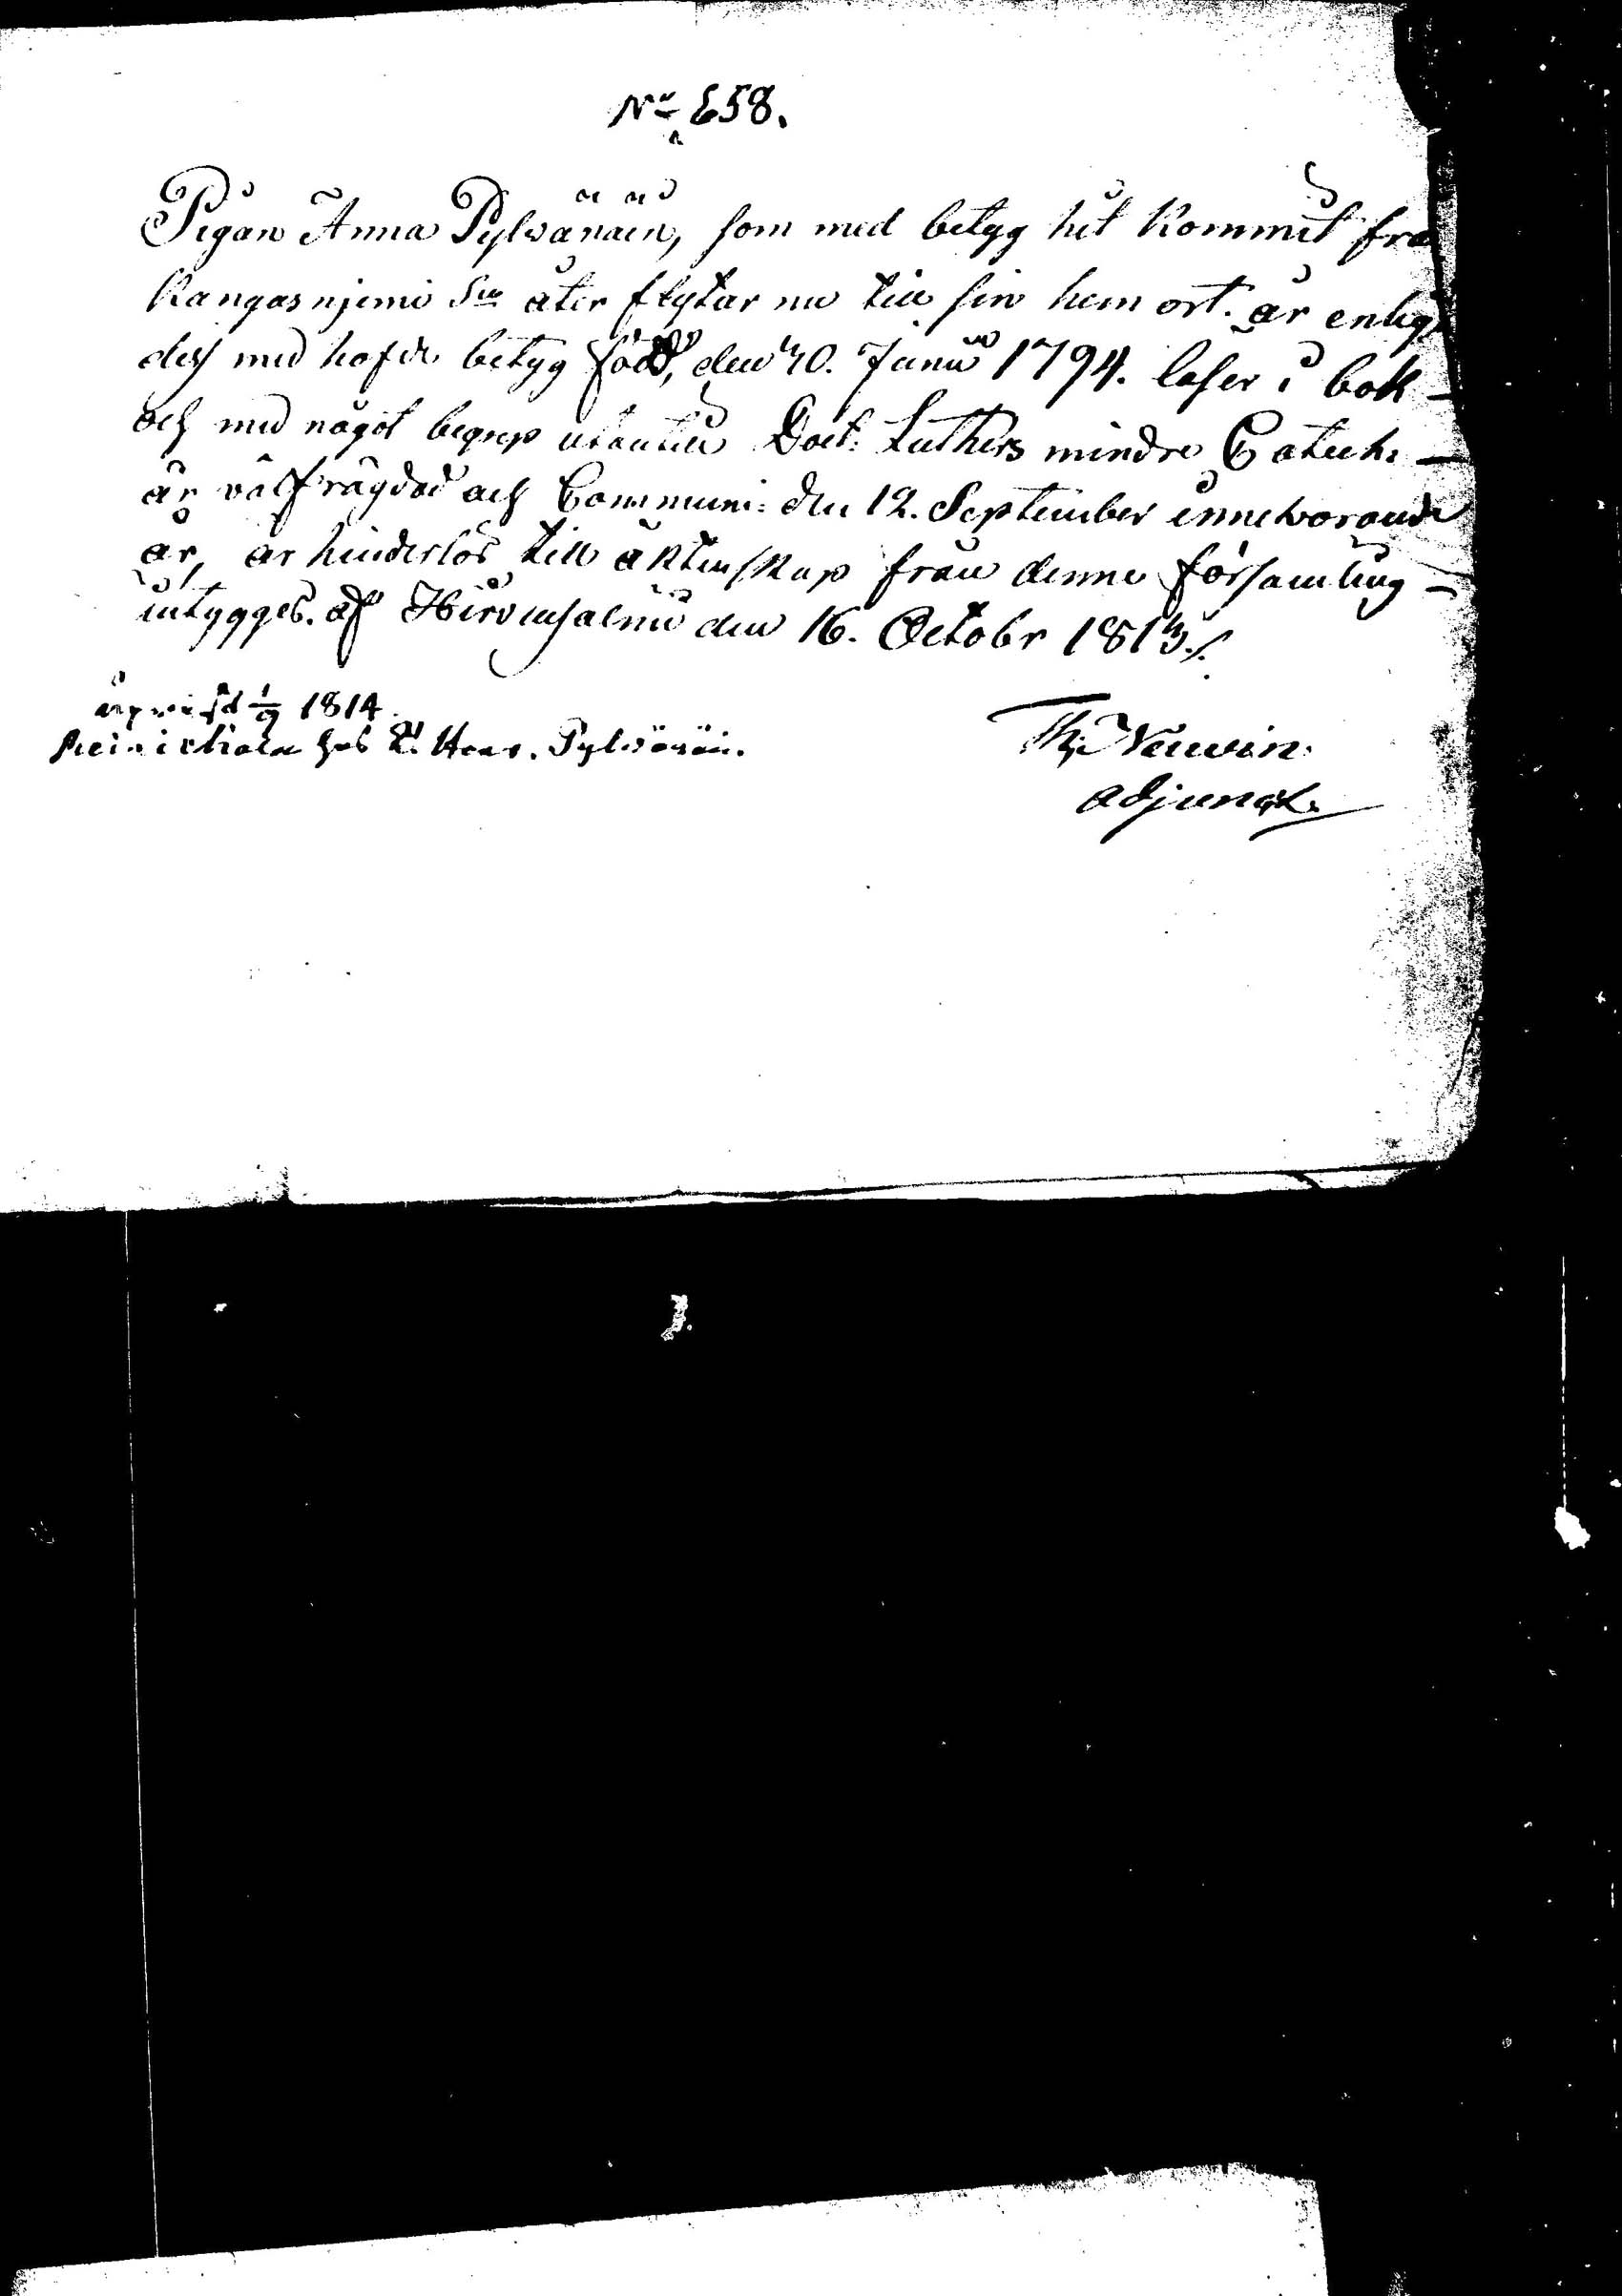 No 658.
Pigan Anna Pylvänäin, som med betyg hit kommit frå
Kangasnjemi Sn åter flytar nu till sin hem ort. är enligt
dess med hafde betyg född, den 30. Junii 1794. läser i bok
och med något begrep utantill Doct: Luthers mindre Catech:
är välfrägdad och Communi: den 12. September innevarande
år, är hinderlös till äktenskap från denne församling
intygges. af Hirvensalmi den 16. Octobr 1813./.
upvist 1/9 1814
hos Pylvänäin.
Th: Neuvin.
adjunct.